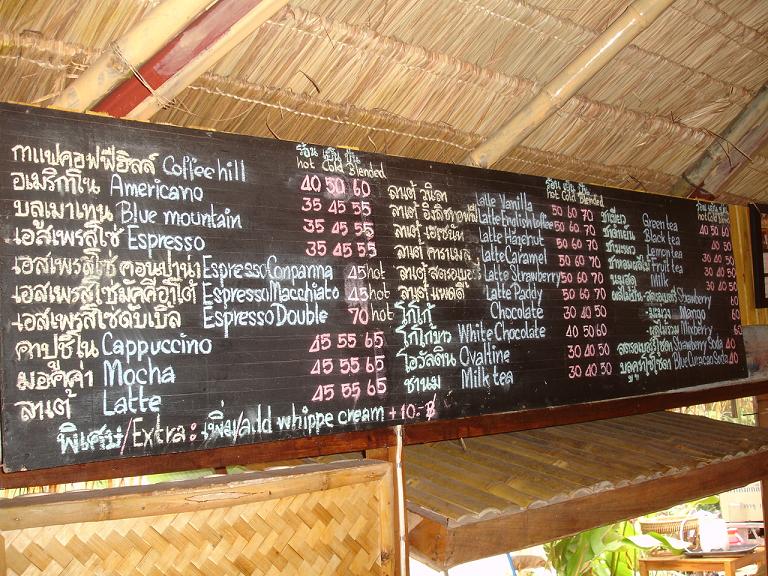 ร้อน เย็น ปั่น
hot Cold Blended
กาแฟคอฟฟี่ฮิลล์ Coffee hill 40 50 60
อเมริกาโน Americano 35 45 55
บลูเมาเทน Blue mountain 35 45 55
เอสเพรสโซ่ Espresso 35 45 55
เอสเพรสโซ่ คอนปาน่า Espresso Conpanna 45 hot
เอสเพรสโซ่มัคคีอาโต้ Espresso Macchiato 45 hot
เอสเพรสโซ่ดับเบิ้ล Espresso Double 70 hot
คาปูชิโน Cappuccino 45 55 65
มอคค่า Mocha 45 55 65
ลาเต้ Latte 45 55 65
พิเศษ/Extra: เพิ่ม/add whippe cream + 10.-฿
ร้อน เย็น ปั่น
hot Cold Blended
ลาเต้ วนิลา Latte Vanilla 50 60 70
ลาเต้ Latte English toffee 50 60 70
ลาเต้ เฮเซนัท Latte Hazenut 50 60 70
ลาเต้ คาราเมล Latte Caramel 50 60 70
ลาเต้ สตรอเบอรี่ Latte Strawberry 50 60 70
ลาเต้ แพดดี้ Latte Paddy 50 60 70
โกโก้ Chocolate 30 40 50
โกโก้ขาว White Chocolate 40 50 60
โอวัลติน Ovaltine 30 40 50
ชานม Milk tea 30 40 50
hot Cold Blended
ชาเขียว Green tea 40 50 60
Black tea 30 40
ชามะนาว Lemon tea 30 40 50
Fruit tea 30 40 50
นมสด Milk 30 40 50
Strawberry 60
มะม่วง Mango 60
Mixberry 60
Strawberry Soda 40
Blue Curacao Soda 40